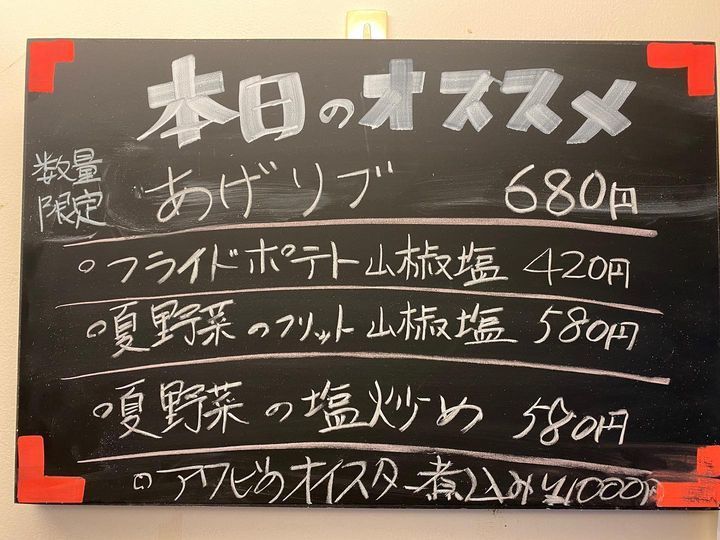 本日のオススメ
数量
限定
あげリブ 680円
○フライドポテト山椒塩 420円
○夏野菜のフリット山椒塩 580円
○夏野菜の塩炒め 580円
○アワビのオイスター煮込み ¥1000円